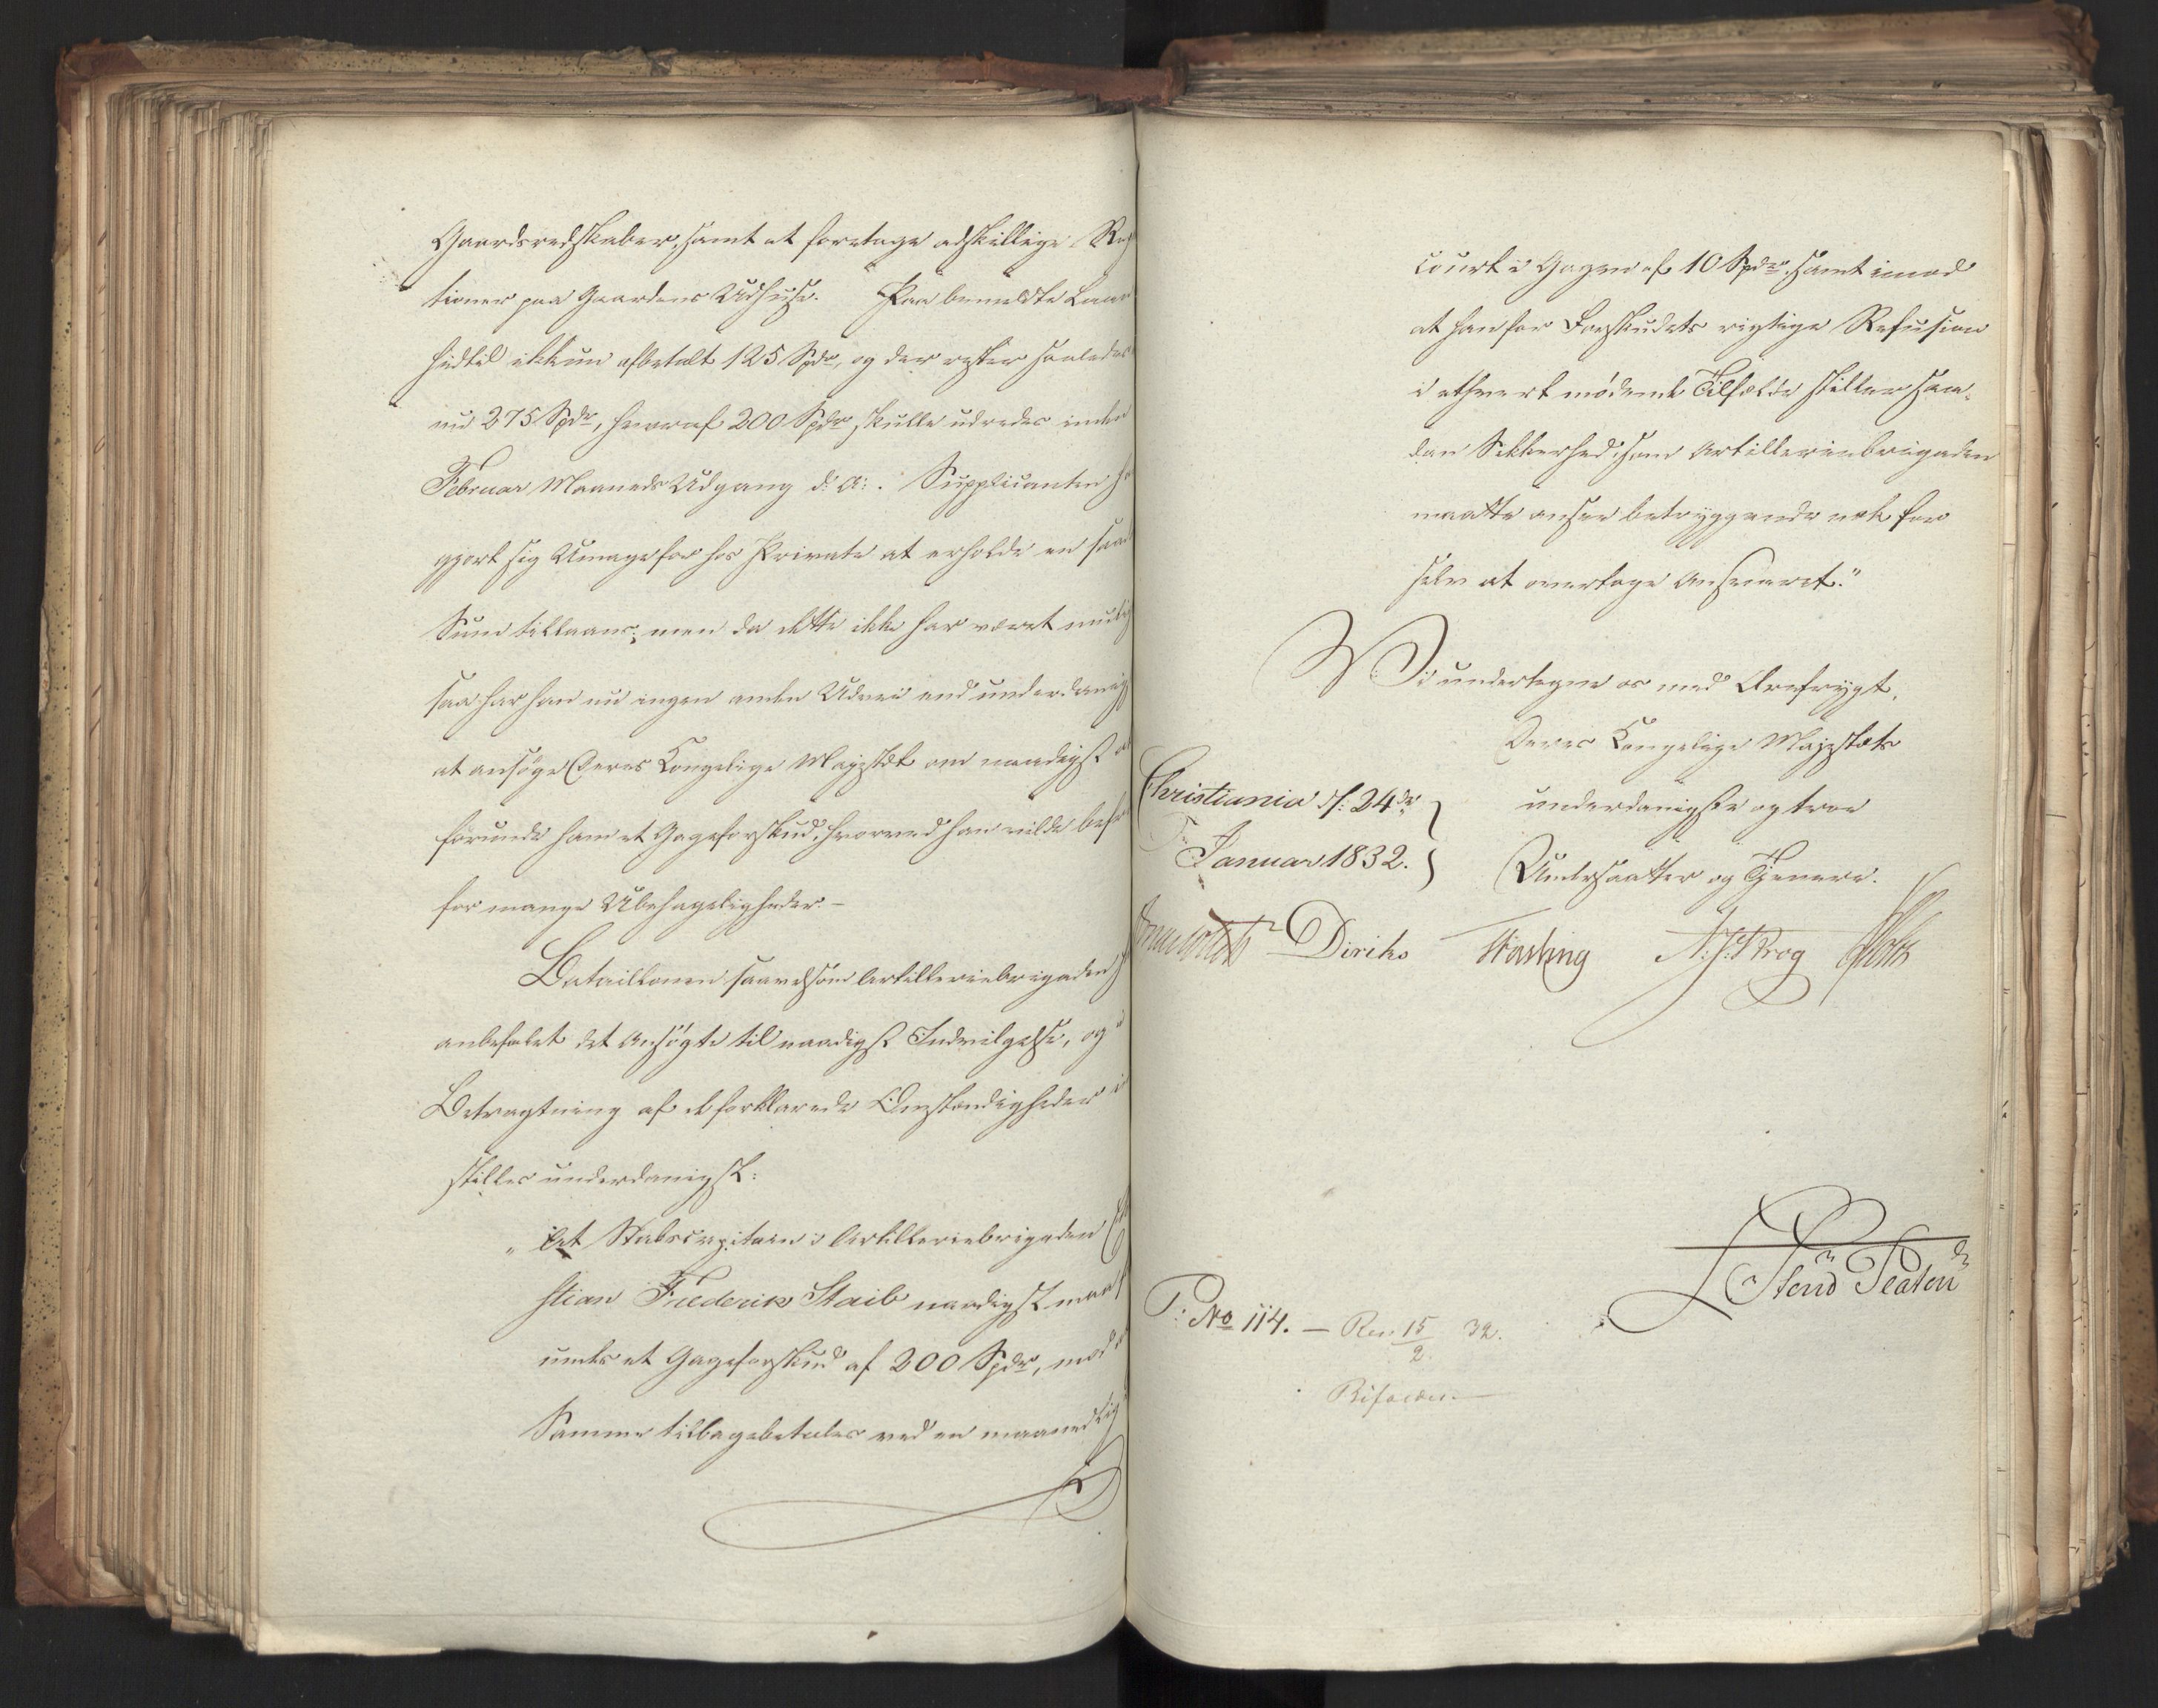 Gaardsredskaber, samt at foretage adskillige Rep
tioner paa Gaardens Udhuse. Paa bemeldte Laan
hidtil ikkun afbetalt 125 Spdr, og der rester saaledes
nu 275 Spdr, hvoraf 200 Spdr skulle udredes inden
Februar Maaneds Udgang d: A:. Supplicanten h
gjort sig Umage for hos Private at erholde en saad
Sum tillaans; men da dette ikke har været mulig
saa har han nu ingen anden Udvei end underdanigs
at ansøge Deres Kongelige Majestæt om naadigst at
forunde ham et Gageforskud, hvorved han vilde befr
for mange Ubehageligheder.-
Bataillonen saavelsom Artilleriebrigaden h
anbefalet det Ansøgte til naadigst Indvilgelse, og i
Betragtning af de forklarede Omstændigheder i
stilles underdanigst:
"At Stabscapitain i Artilleriebrigaden Ch
stian Frederik Staib naadigst maa f
undes et Gageforskud af 200 Spdr, mod a
Samme tilbagebetales ved en maanedlig
Court i Gagen af 10 Spdr, samt imod
at han for Forskudets rigtige Refusion
i ethvert mødende Tilfælde stiller saa-
dan Sikkerhed, som Artilleriebrigaden
maatte ansee betryggende nok for
selv at overtage Ansvaret."
Vi undertegne os med Ærefrygt,
Deres Kongelige Majestæts
underdanigste og troe
Undersaatter og Tjenere.
Christiania d: 24de
Januar 1832.
Diriks Fasting A. J. Krog Holst
P: No 114. – Res 15/2 32.
Bifaldes.